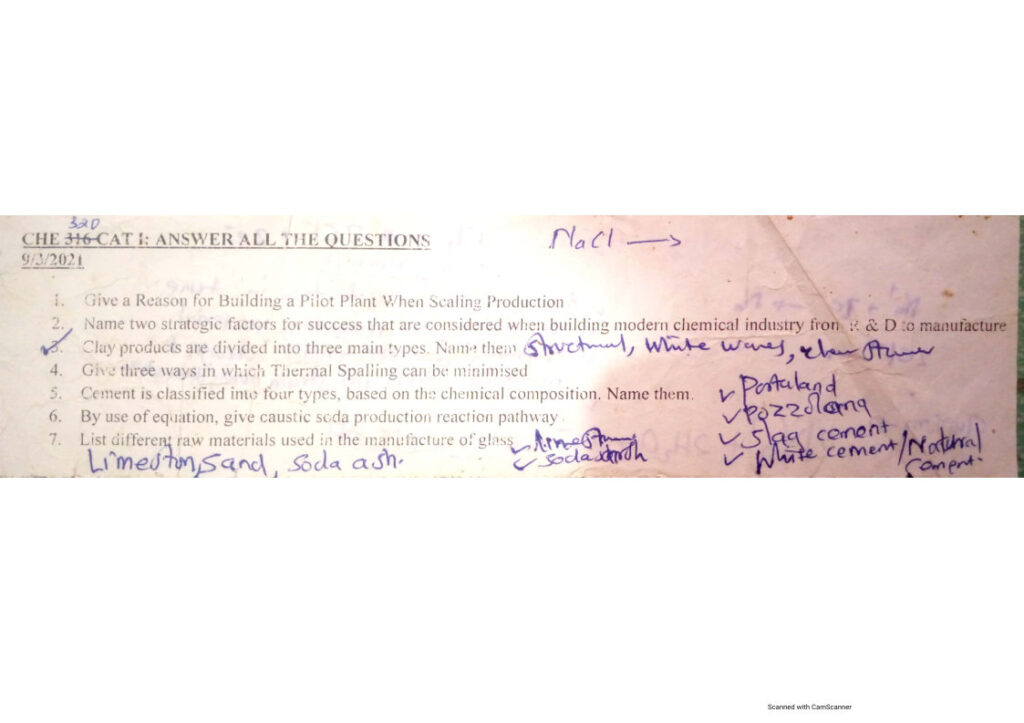 320
CHE 316 CAT I: ANSWER ALL THE QUESTIONS
NaCl →
9/3/2021
1. Give a Reason for Building a Pilot Plant When Scaling Production
2. Name two strategic factors for success that are considered when building modern chemical industry from R & D to manufacture
3. Clay products are divided into three main types. Name them Structural, White wares,
4. Give three ways in which Thermal Spalling can be minimised
5. Cement is classified into four types, based on the chemical composition. Name them.
✓ Portaland
6. By use of equation, give caustic soda production reaction pathway.
✓ Pozzolana
7. List different raw materials used in the manufacture of glass
✓ Slag cement
Limeston, Sand, Soda ash.
✓ White cement/Natural
Cement.
Scanned with CamScanner